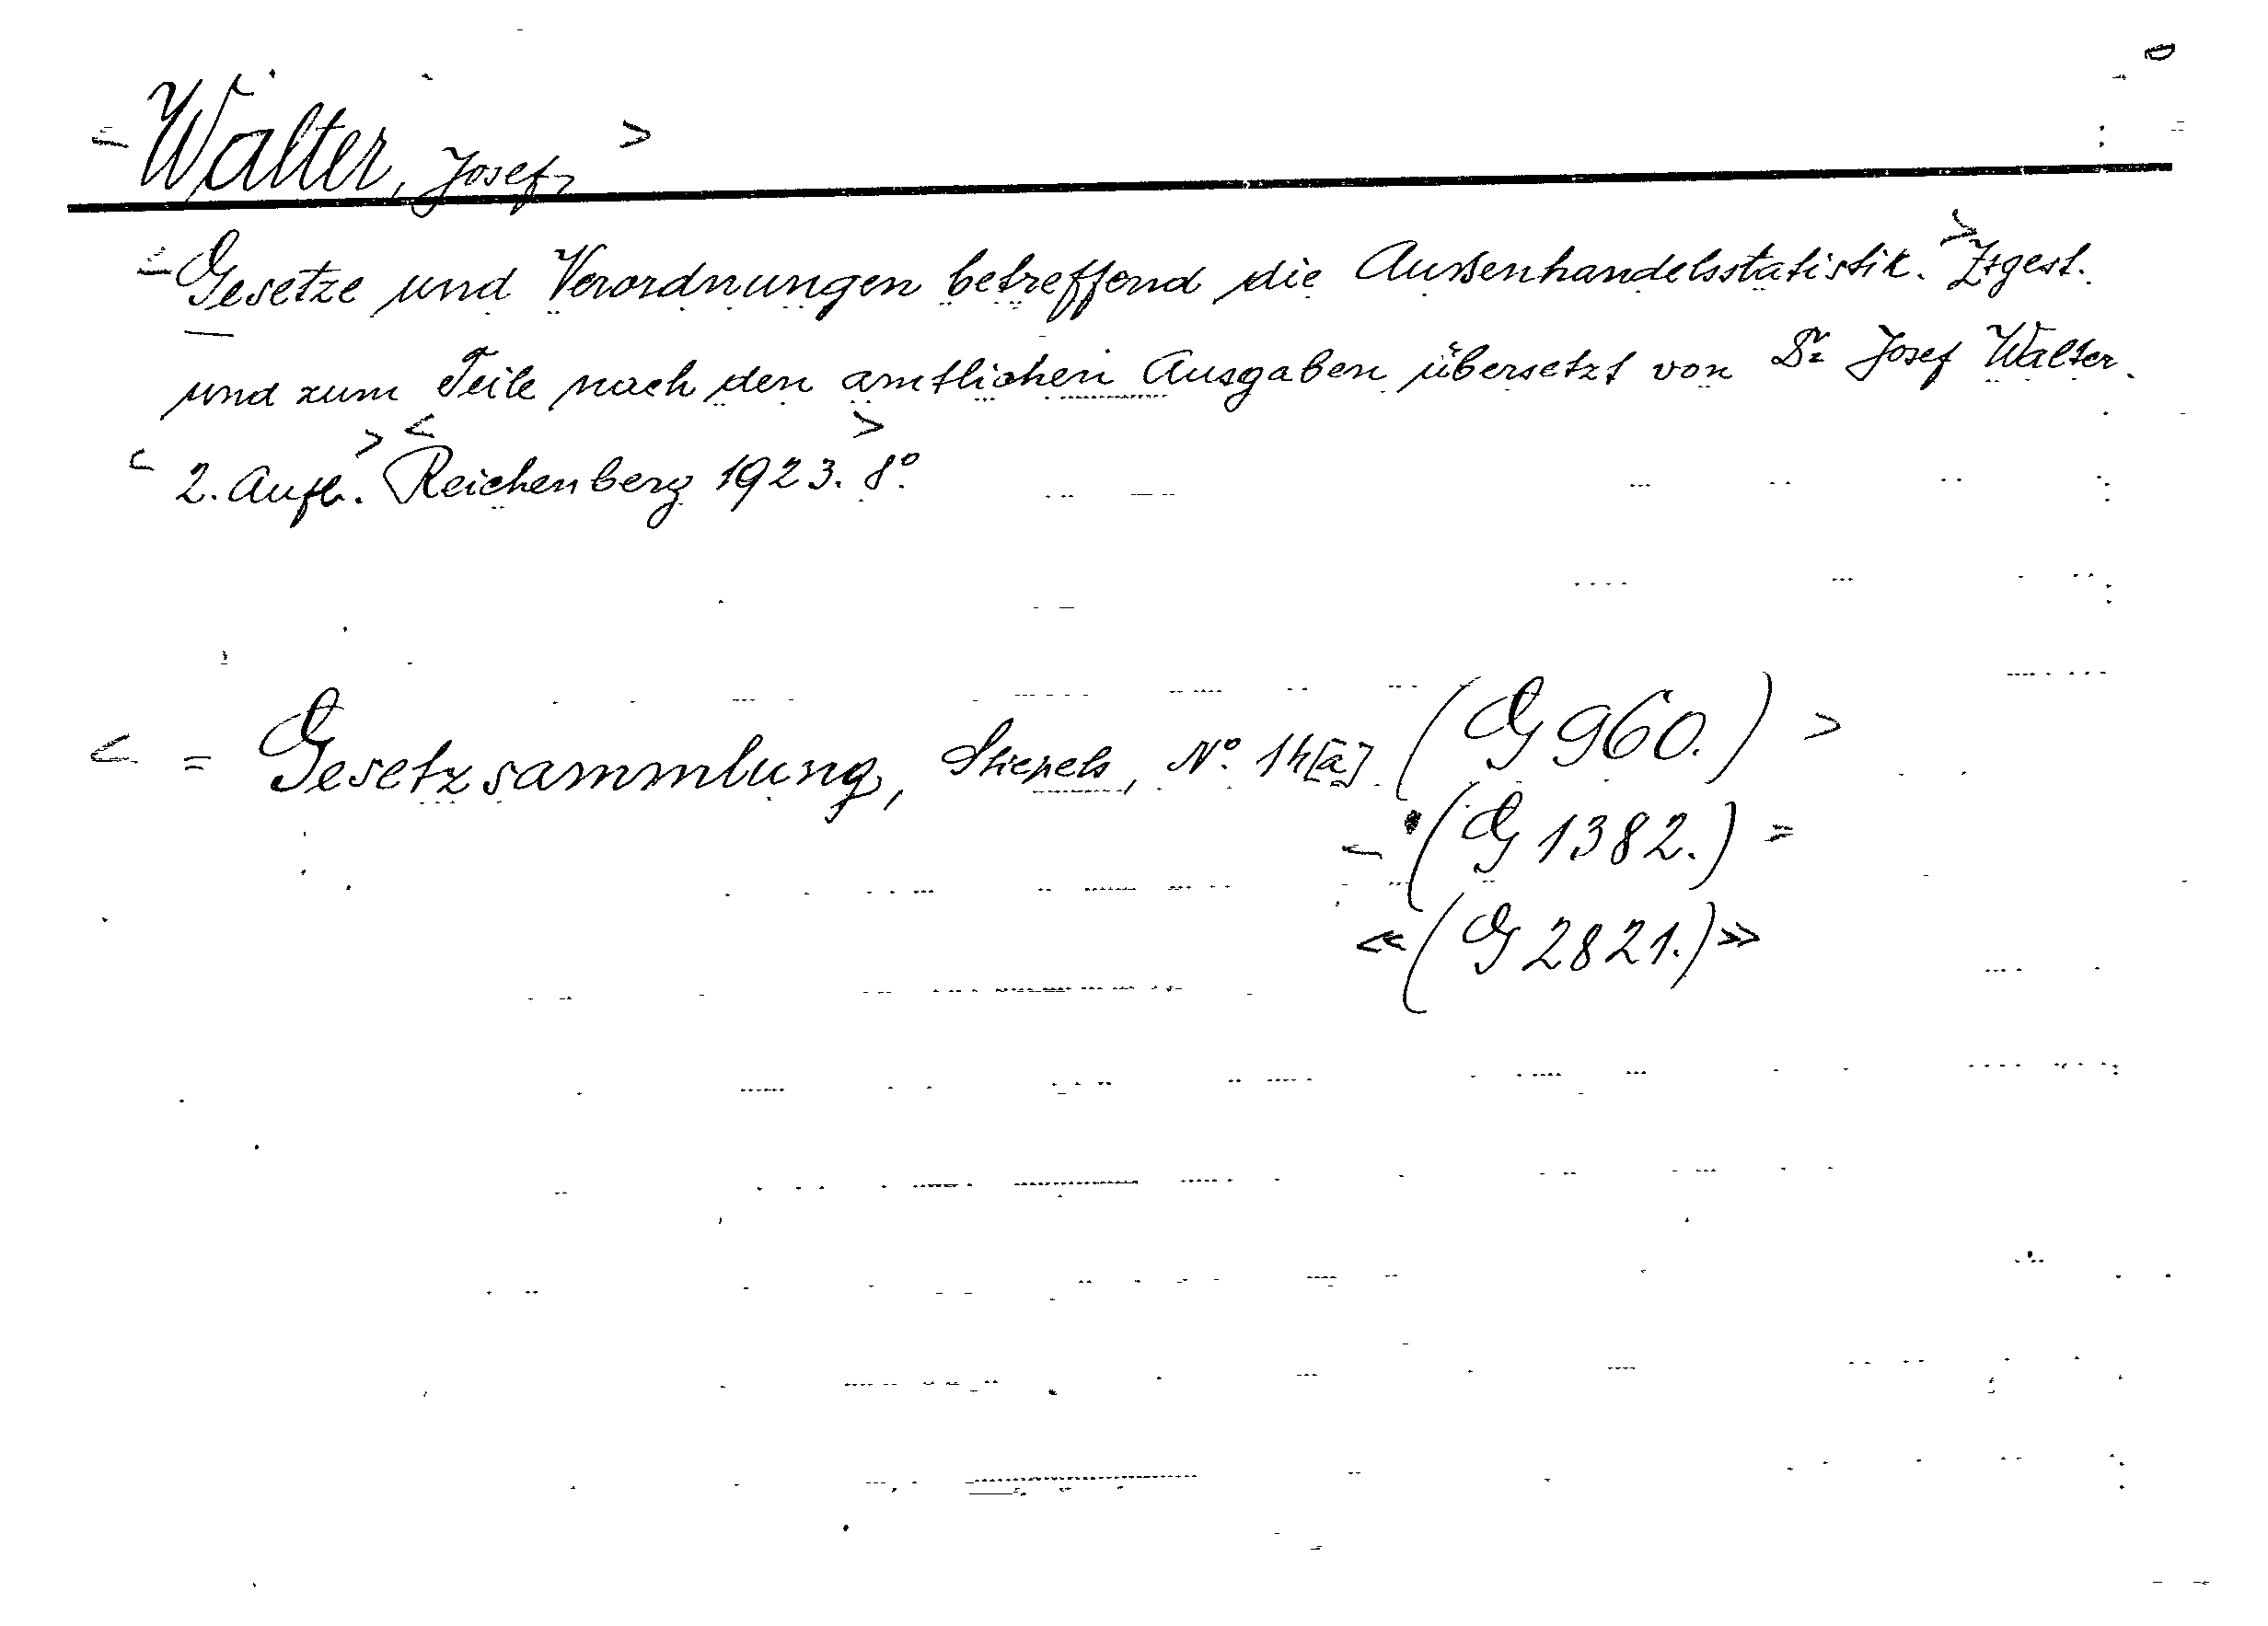 Walter, Josef,
Gesetze und Verordnungen betreffend die Außenhandelsstatistik. Zsgest.
und zum Teile nach den amtlichen Ausgaben übersetzt von Dr Josef Walter.
2. Aufl. Reichenberg 1923. 8°.
= Gesetzsammlung, Stiepels, No. 14[a]. (G 960.)
(G 1382.)
(G 2821.)